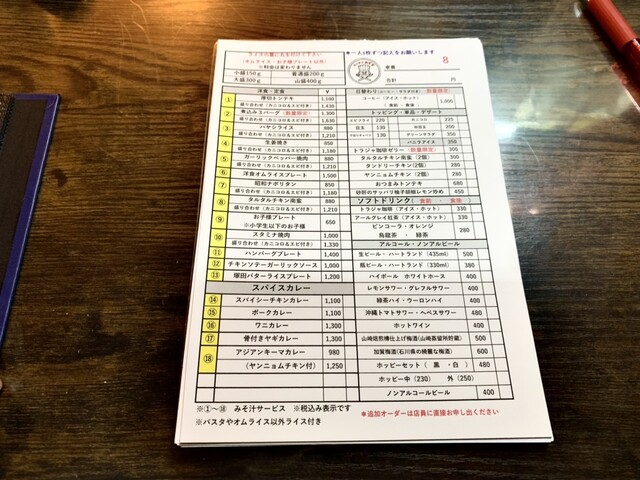 ライスの量に丸を付け下さい
(オムライス・お子様プレート以外)
※料金は変わりません
小盛150g 普通盛200g
大盛300g 山盛400g
★一人1枚ずつ記入をお願いします
8
合計 円
洋食・定食 ¥
① 厚切トンテキ 1,100
盛り合わせ(カニコロ&エビ付き) 1,430
② 煮込みハンバーグ(数量限定) 1,300
盛り合わせ(カニコロ&エビ付き) 1,630
③ ハヤシライス 880
盛り合わせ(カニコロ&エビ付き) 1,210
④ 生姜焼き 850
盛り合わせ(カニコロ&エビ付き) 1,180
⑤ ガーリックペッパー焼肉 880
盛り合わせ(カニコロ&エビ付き) 1,210
⑥ 洋食オムライスプレート 1,500
⑦ 昭和ナポリタン 850
盛り合わせ(カニコロ&エビ付き) 1,180
⑧ タルタルチキン南蛮 880
盛り合わせ(カニコロ&エビ付き) 1,210
⑨ お子様プレート 650
※小学生以下のお子様
⑩ スタミナ焼肉 1,000
盛り合わせ(カニコロ&エビ付き) 1,330
⑪ ハンバーグプレート 1,400
⑫ チキンソテーガーリックソース 1,000
⑬ 塚田バターライスプレート 1,200
スパイスカレー
⑭ スパイシーチキンカレー 1,100
⑮ ポークカレー 1,100
⑯ ワニカレー 1,300
⑰ 骨付きヤギカレー 1,300
⑱ アジアンキーマカレー 980
(ヤンニョムチキン付) 1,250
日替わり(コーヒー・サラダ付き) 数量限定
コーヒー(アイス・ホット) 1,000
(食前・食後)
トッピング・単品・デザート
エビフライ 220 カニコロ 220
目玉 130 200
130 グリーンサラダ 350
バニラアイス 350
トラジャ珈琲ゼリー(数量限定) 350
タルタルチキン南蛮(2個) 350
タンドリーチキン(2個) 350
ヤンニョムチキン(2個) 350
おつまみトンテキ 680
砂肝のサッパリ柚子胡椒レモン炒め 450
ソフトドリンク(食前・食後)
トラジャ珈琲(アイス・ホット) 330
アールグレイ紅茶(アイス・ホット) 330
ビンコーラ・オレンジ 280
烏龍茶・緑茶
アルコール・ノンアルビール
生ビール・ハートランド(435ml) 500
瓶ビール・ハートランド(330ml) 380
ハイボール ホワイトホース 400
レモンサワー・グレフルサワー 400
緑茶ハイ・ウーロンハイ 400
沖縄トマトサワー・ヘベスサワー 480
ホットワイン 400
山崎焙煎樽仕上げ梅酒(山崎蒸留所貯蔵) 500
加賀梅酒(石川県の綺麗な梅酒) 600
ホッピーセット(黒・白) 480
ホッピー中(230) 外(250)
ノンアルコールビール 400
※①~⑱ みそ汁サービス ※税込み表示です
※パスタやオムライス以外ライス付き
★追加オーダーは店員に直接お申し出ください